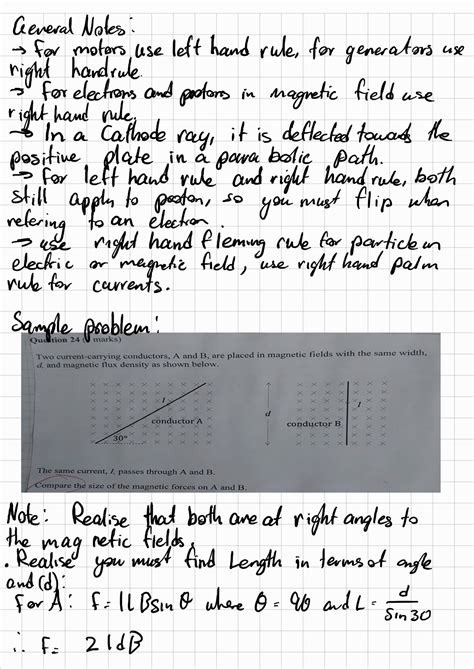 General Notes:
→ For motors use left hand rule, for generators use
right hand rule.
→ for electrons and protons in magnetic field use
right hand rule.
→ In a Cathode ray, it is deflected towards the
positive plate in a parabolic path.
→ For left hand rule and right hand rule, both
still apply to proton, so you must flip when
refering to an electron.
→ use right hand fleming rule for particle in
electric or magnetic field, use right hand palm
rule for currents.
Sample problem:
Question 24 ( marks)
Two current-carrying conductors, A and B, are placed in magnetic fields with the same width,
d, and magnetic flux density as shown below.
I
conductor A
30°
d
I
conductor B
The same current, I, passes through A and B.
Compare the size of the magnetic forces on A and B.
Note: Realise that both are at right angles to
the magnetic fields.
. Realise you must find Length in terms of angle
and (d):
For A: F = ILBsinθ where θ = 90 and L = d/Sin30
∴ F = 2IdB